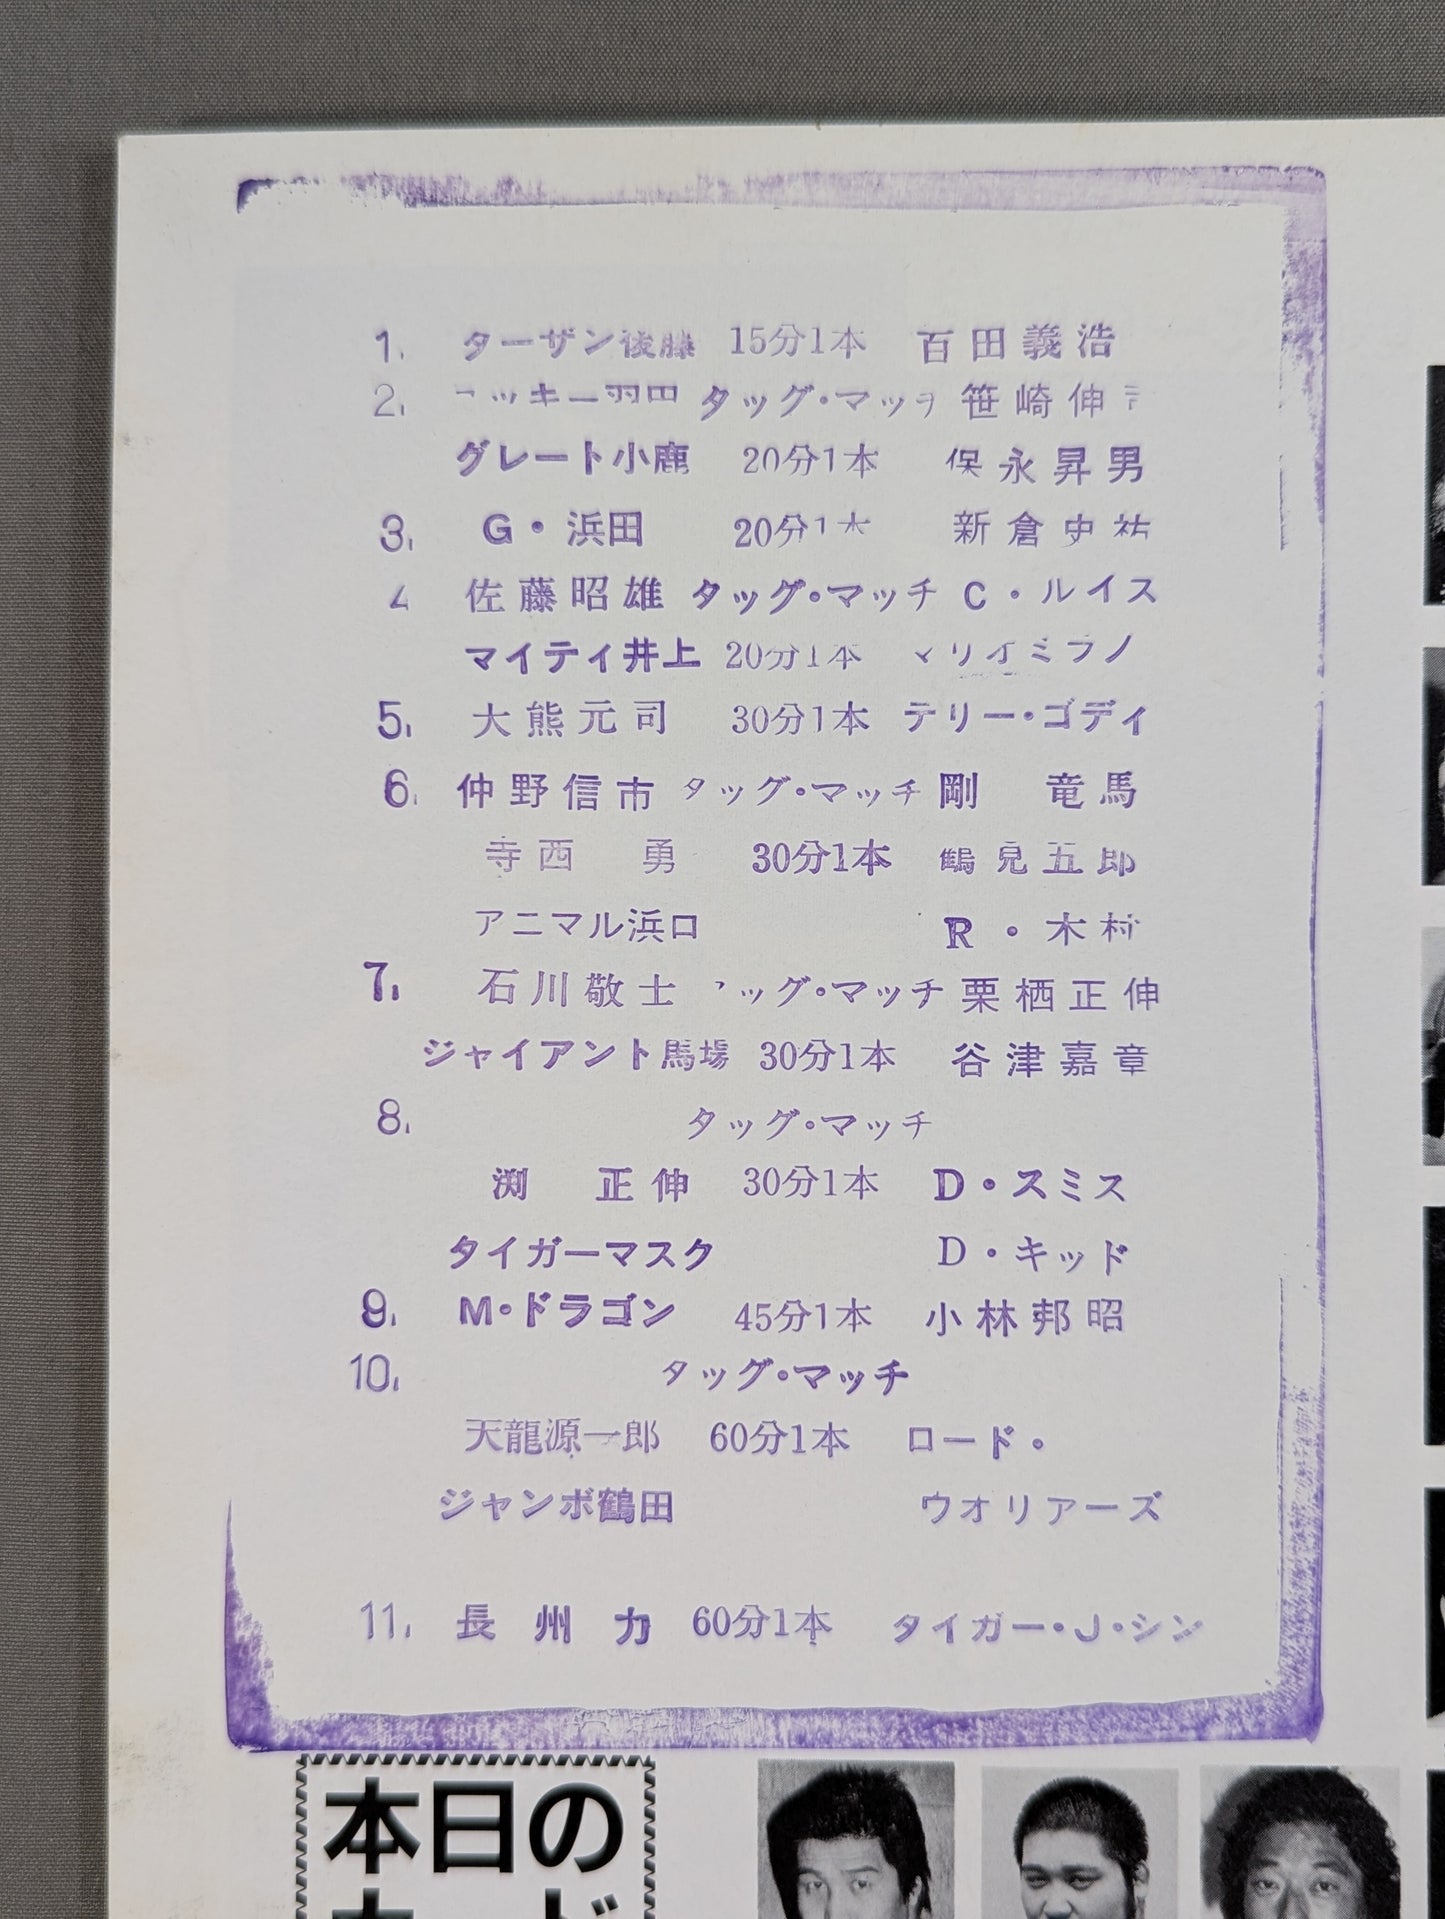 1. ターザン後藤 15分1本 百田義浩
2. ロッキー羽田 タッグ・マッチ 笹崎伸司
グレート小鹿 20分1本 保永昇男
3. G・浜田 20分1本 新倉史祐
4 佐藤昭雄 タッグ・マッチ C・ルイス
マイティ井上 20分1本 マリオミラノ
5. 大熊元司 30分1本 テリー・ゴディ
6. 仲野信市 タッグ・マッチ 剛 竜馬
寺西 勇 30分1本 鶴見五郎
アニマル浜口 R・木村
7. 石川敬士 タッグ・マッチ 栗栖正伸
ジャイアント馬場 30分1本 谷津嘉章
8. タッグ・マッチ
渕 正伸 30分1本 D・スミス
タイガーマスク D・キッド
9. M・ドラゴン 45分1本 小林邦昭
10. タッグ・マッチ
天龍源一郎 60分1本 ロード・
ジャンボ鶴田 ウオリアーズ
11. 長州力 60分1本 タイガー・J・シン
本日の